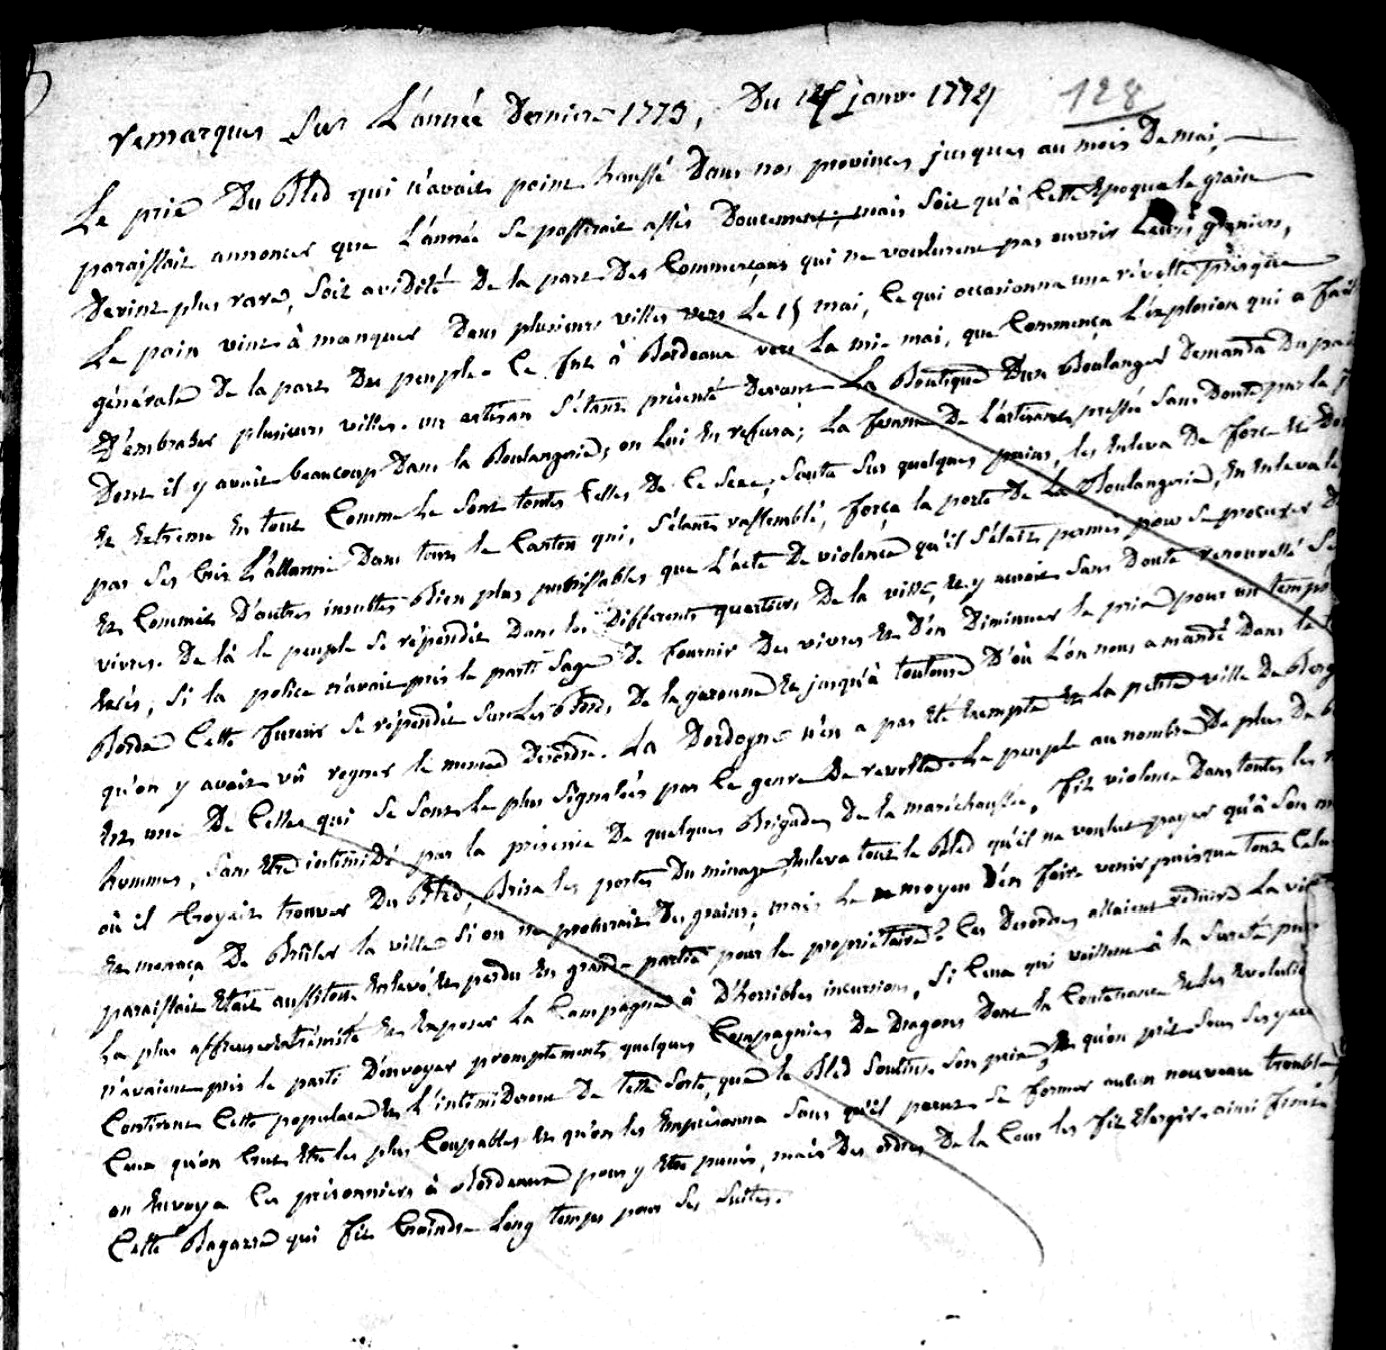 128
remarques sur L'année Derniere 1773, Du janvr 1774
Le prix Du Bled qui n'avait point haussé Dans nos provinces jusques au mois De mai,
paraissait annoncer que L'année se passerait assés Doucement; mais soit qu'à Cette Epoque le grain
Devint plus rare, soit avidité De la part Des Commerçans qui ne voulurent pas ouvrir Leurs greniers,
Le pain vint à manquer Dans plusieurs villes vers Le 15 mai, Ce qui occasionna une révolte presque
générale De la part Du peuple. Ce fut à Bordeaux vers La mi-mai, que Commença L'explosion qui a fait
D'embraser plusieurs villes. un artisan s'étant présenté Devant La Boutique D'un Boulanger Demanda Du pai
Dont il y avait beaucoup Dans la Boulangerie, on Lui En refusa; La femme De L'artisan pressée sans Doute par la f
Et Extreme En tout Comme Le sont toutes Celles De Ce sexe, saute sur quelques pains, les Enleva De force Et Do
par ses Cris L'allarme Dans tout le Canton qui, s'étant rassemblé, força la porte De La Boulangerie, En Enleva le
Et Commit D'autres insultes Bien plus punissables que L'acte De violence qu'il s'était permis pour se procurer D
vivres. De là le peuple se répendit Dans les Differents quartiers De la ville, Et y aurait sans Doute renouvellé se
Excés, si la police n'avait pris le parti sage De fournir Des vivres Et D'en Diminuer le prix pour un temps
Bordeaux Cette fureur se répendit sur Les Bords De la garonne Et jusqu'à toulouse D'où L'on nous a mandé Dans le
qu'on y avait vû regner le meme Desordre. La Dordogne n'en a pas Eté Exempte Et La petite ville De Berg
Est une De Celles qui se sont Le plus signalées par Ce genre De revolte. Le peuple au nombre De plus De
hommes, sans Etre intimidé par la présence De quelques Brigades De la maréchaussée, fit violence Dans toutes les
où il Croyait trouver Du Bled, Brisa les portes Du minage, Enleva tout le Bled qu'il ne voulut payer qu'à son m
Et menaça De Brûler la ville si on ne procurait Des grains; mais Le moyen D'en faire venir puisque tout Celui
paraissait Etait aussitot Enlevé, Et perdu En grande partie pour le propriétaire? Ces Desordres allaient reduire La vil
La plus affreuse Extrémité Et Exposer La Campagne à D'horribles incursions, si Ceux qui veillent à la sureté pu
n'avaient pris le parti D'envoyer promptement quelques Compagnies De Dragons Dont la Contenance Et les Evolutio
Continrent Cette populace Et L'intimiderent De Cette sorte, que le Bled soutint son prix, Et qu'on prit sous ses yeu
Ceux qu'on Crut Etre les plus Coupables Et qu'on les Emprisonna sans qu'il parut se former aucun nouveau trouble
on Envoya Ces prisonniers à Bordeaux pour y Etre punis, mais Des ordres De la Cour les fit Elargir. ainsi finit
Cette Bagarre qui fit Craindre Long temps pour ses suites.